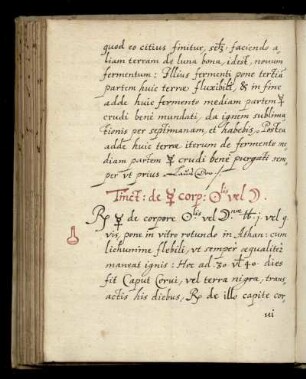 quod eo citius finitur, sctz: faciendo a,
liam terram de luna bona, idest, nouum
fermentum: Illius fermenti pone tertiã
partem huic terræ fluxibili, & in fine
adde huic fermento mediam partem ☿
crudi bene mundati, da ignem sublima
tionis per septimanam, et habebis, Postea
adde huic terræ iterum de fermento me,
diam partem ☿ crudi bene purgati sem,
per vt prius Laus Deo:
Tinct: de ☿ corp: ☉lis vel ☽.
Rp ☿ de corpore ☉lis vel ☽næ ℔ j vel q
vis, pone in vitro rotundo in Athan: cum
lichnimine flebili, vt semper æqualiter
maneat ignis: Hoc ad 30 vl 40 dies
fit Caput Corui, vel terra nigra, trans,
actis his diebus, Rp de illo capite cor,
ui